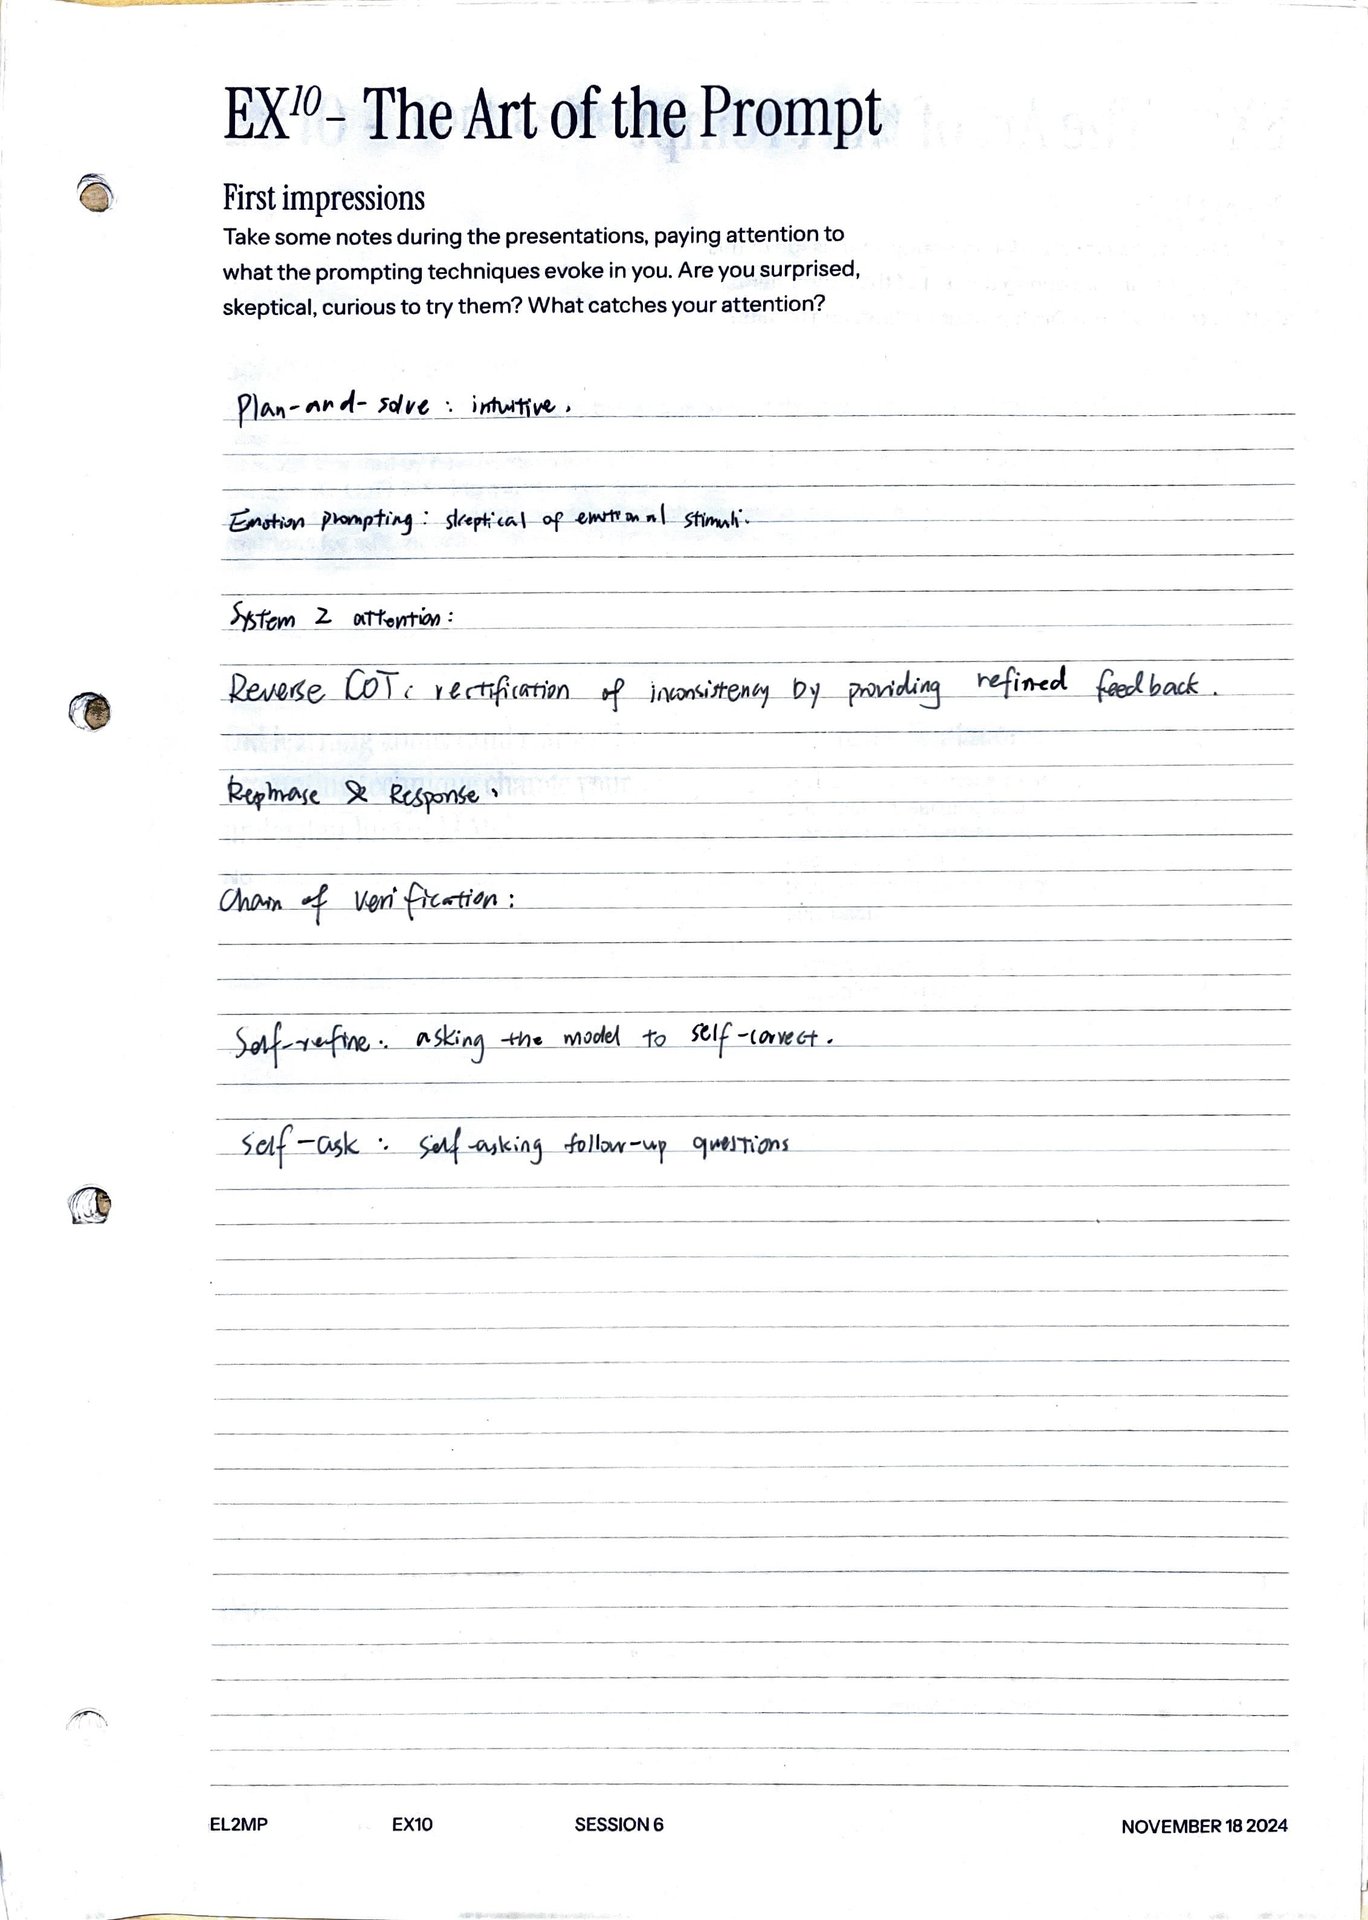 EX10 - The Art of the Prompt
First impressions
Take some notes during the presentations, paying attention to
what the prompting techniques evoke in you. Are you surprised,
skeptical, curious to try them? What catches your attention?
Plan-and-solve : intuitive.
Emotion prompting : skeptical of emotional stimuli.
System 2 attention :
Reverse COT : rectification of inconsistency by providing refined feedback.
Rephrase & Response :
Chain of verification :
Self-refine : asking the model to self-correct.
Self-ask : self-asking follow-up questions
EL2MP EX10 SESSION 6 NOVEMBER 18 2024